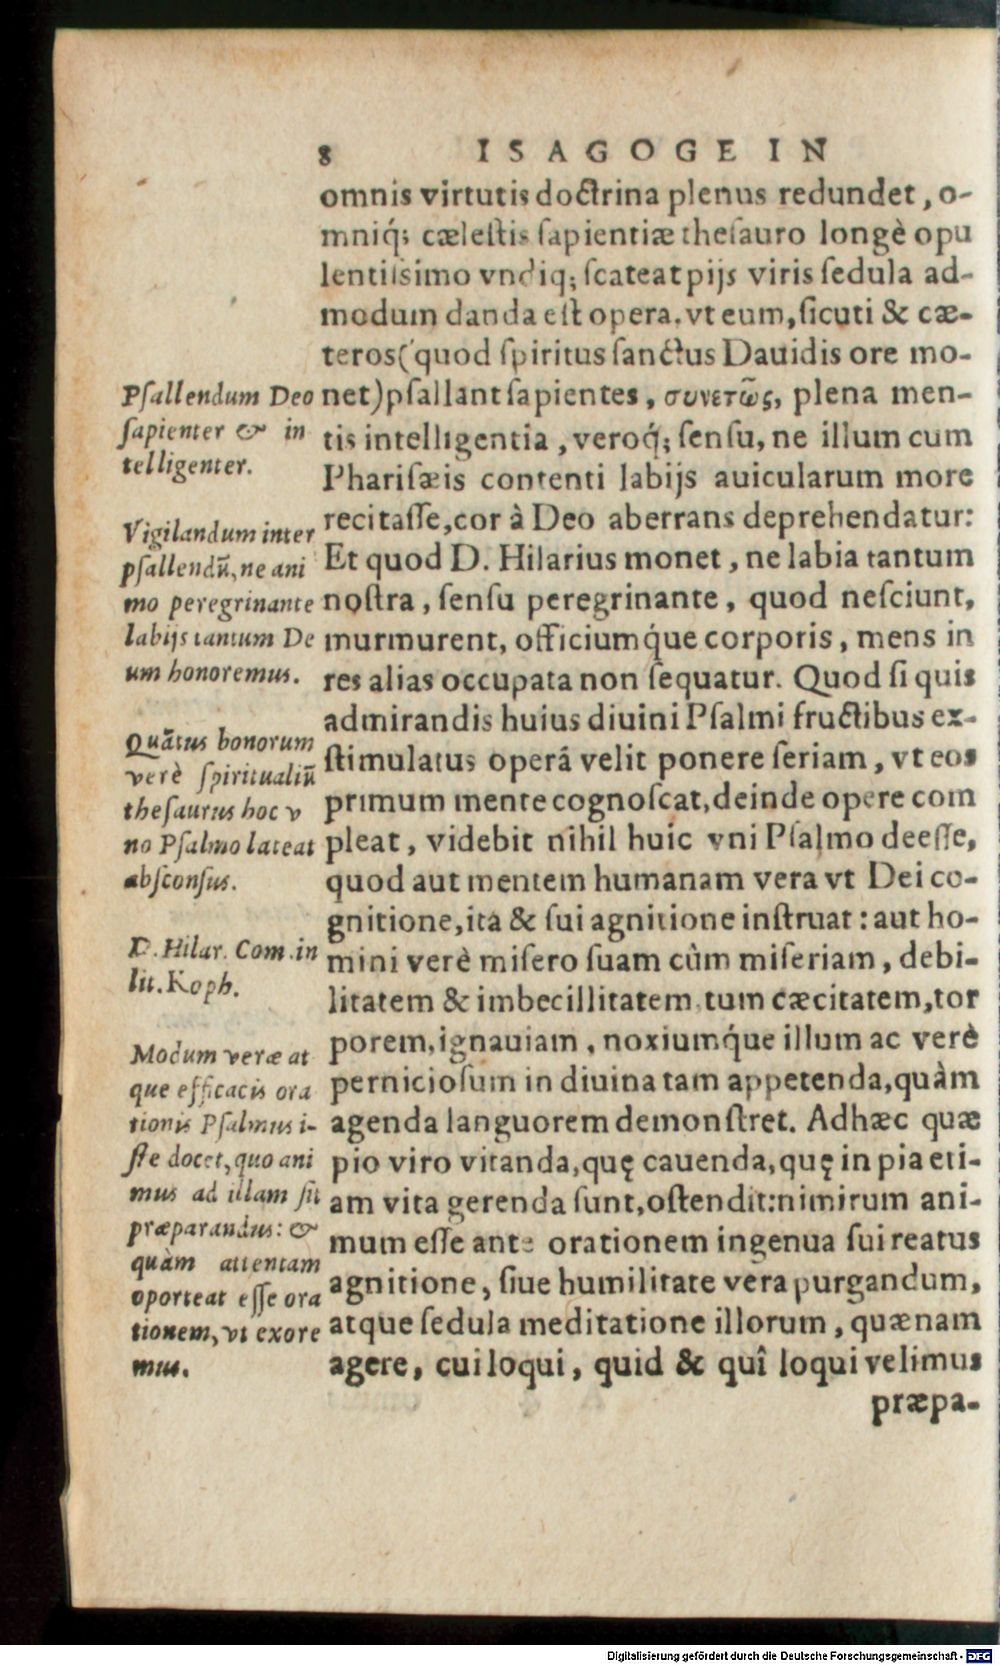 8 ISAGOGE IN
omnis virtutis doctrina plenus redundet, o-
mniq́; cælestis sapientiæ thesauro longè opu
lentissimo vndiq; scateat pijs viris sedula ad-
modum danda est opera, vt eum, sicuti & cæ-
teros (quod spiritus sanctus Dauidis ore mo-
net) psallant sapientes, συνετῶς, plena men-
tis intelligentia, veroq́; sensu, ne illum cum
Pharisæis contenti labijs auicularum more
recitasse, cor à Deo aberrans deprehendatur:
Et quod D. Hilarius monet, ne labia tantum
nostra, sensu peregrinante, quod nesciunt,
murmurent, officiumq́ue corporis, mens in
res alias occupata non sequatur. Quod si quis
admirandis huius diuini Psalmi fructibus ex-
stimulatus operā velit ponere seriam, vt eos
primum mente cognoscat, deinde opere com
pleat, videbit nihil huic vni Psalmo deesse,
quod aut mentem humanam vera vt Dei co-
gnitione, ita & sui agnitione instruat: aut ho-
mini verè misero suam cùm miseriam, debi-
litatem & imbecillitatem, tum cæcitatem, tor
porem, ignauiam, noxiumq́ue illum ac verè
perniciosum in diuina tam appetenda, quàm
agenda languorem demonstret. Adhæc quæ
pio viro vitanda, quę cauenda, quę in pia eti-
am vita gerenda sunt, ostendit: nimirum ani-
mum esse ante orationem ingenua sui reatus
agnitione, siue humilitate vera purgandum,
atque sedula meditatione illorum, quænam
agere, cui loqui, quid & quî loqui velimus
præpa-
Psallendum Deo
sapienter & in
telligenter.
Vigilandum inter
psallendū, ne ani
mo peregrinante
labijs tantum De
um honoremus.
Quātus bonorum
verè spiritualiū
thesaurus hoc v
no Psalmo lateat
absconsus.
D. Hilar. Com. in
lit. Koph.
Modum veræ at
que efficacis ora
tionis Psalmus i-
ste docet, quo ani
mus ad illam sit
præparandus: &
quàm attentam
oporteat esse ora
tionem, vt exore
mus.
Digitalisierung gefördert durch die Deutsche Forschungsgemeinschaft - DFG